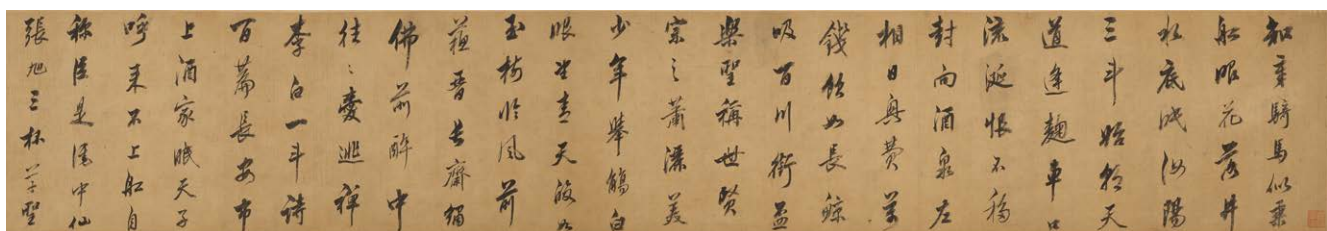 知章騎馬似乘
船眼花落井
水底眠汝陽
三斗始朝天
道逢麴車口
流涎恨不移
封向酒泉左
相日興費萬
錢飲如長鯨
吸百川銜盃
樂聖稱世賢
宗之蕭灑美
少年舉觴白
眼望青天皎如
玉樹臨風前
蘇晉長齋繡
佛前醉中
往〻愛逃禪
李白一斗詩
百篇長安市
上酒家眠天子
呼來不上船自
稱臣是酒中仙
張旭三杯草聖